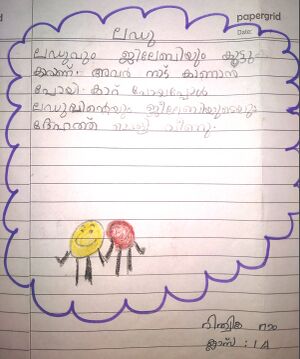 papergrid
Date:
ലഡു
ലഡുവും ജിലേബിയും കൂട്ടുകാ
അവർ നാട് കാണാൻ
പോയി. കാറ് പോയപ്പോൾ
ലഡുവിന്റെയും ജിലേബിയുടെയും
ദേഹത്ത് ചെളി വീണു.
റാം
ക്ലാസ് : 1 A